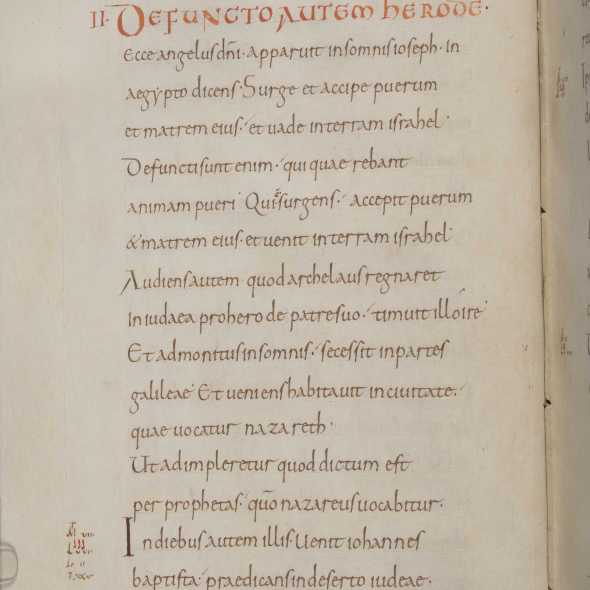 II· DEFUNCTO AUTEM HERODE·
Ecce angelus dñi· apparuit insomnis ioseph· in
aegypto dicens· Surge et accipe puerum
et matrem eius· et uade interram israhel·
Defuncti sunt enim· qui quaerebant
animam pueri· Qui surgens· accepit puerum
& matrem eius· et uenit interram israhel·
Audiens autem quod archelaus regnaret
in iudaea pro herode patre suo· timuit illo ire·
Et admonitus insomnis· secessit inpartes
galileae· Et ueniens habitauit inciuitate·
quae uocatur nazareth·
Ut adimpleretur quod dictum est
per prophetas· qm̄o nazareus uocabitur·
In diebus autem illis· Uenit iohannes
baptista· praedicans indeserto iudeae·